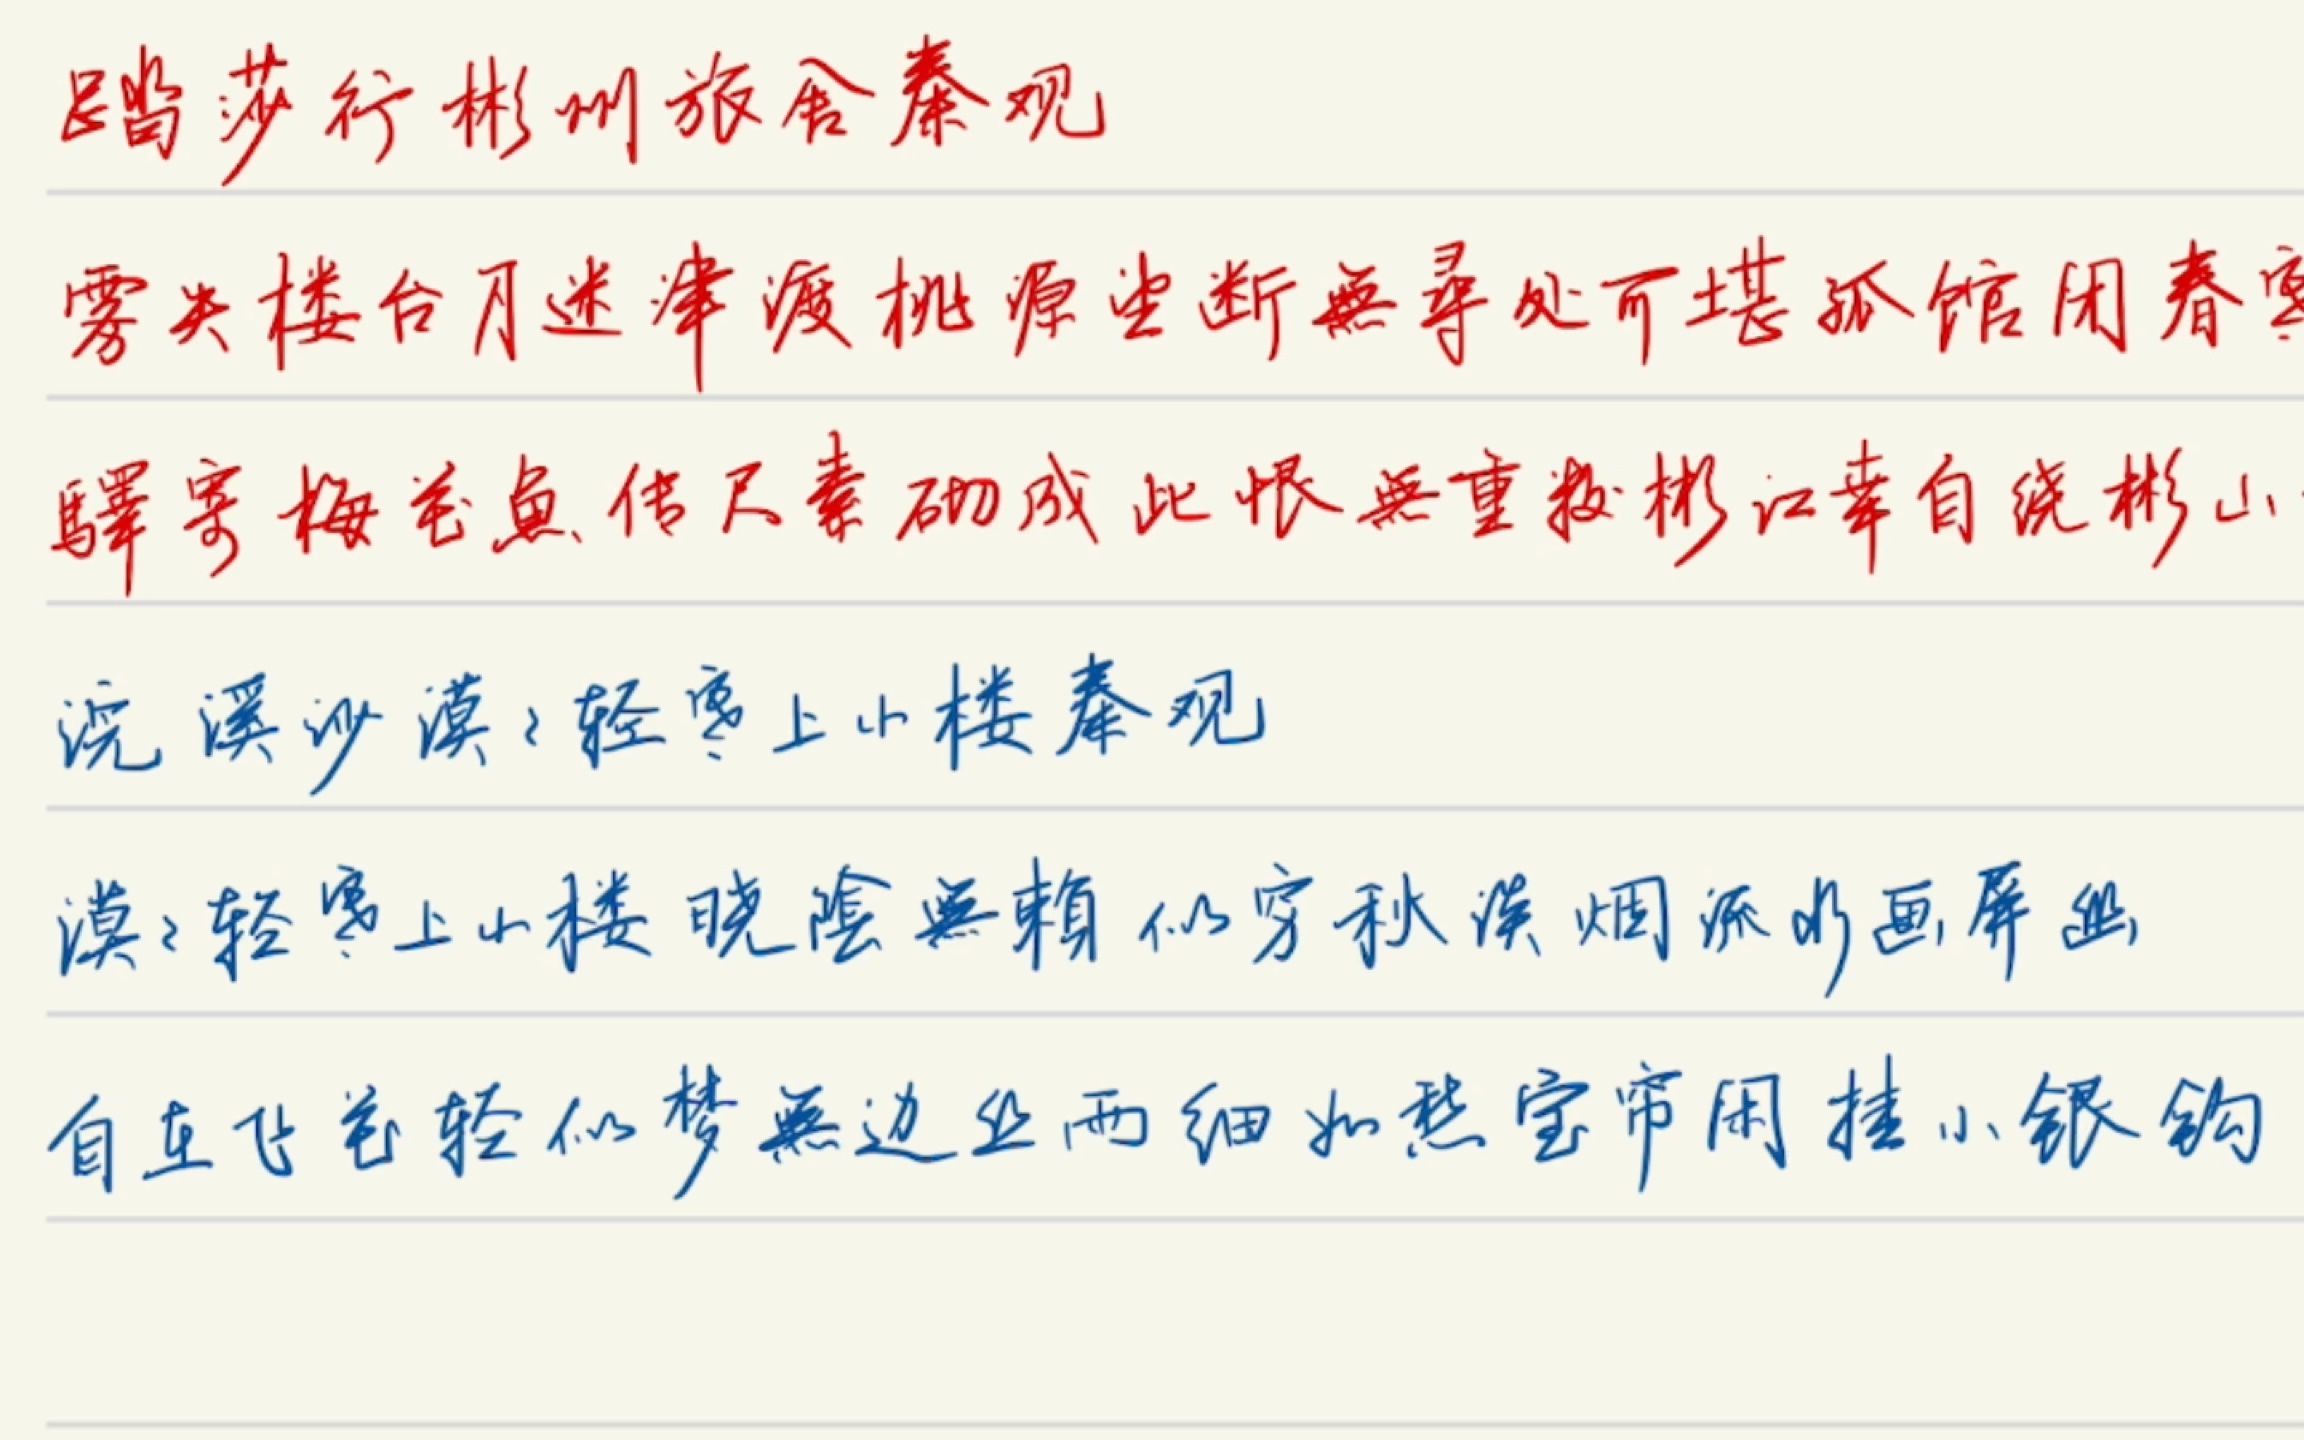 踏莎行彬州旅舍秦观
雾失楼台月迷津渡桃源望断無尋处可堪孤馆闭春寒
驛寄梅花鱼传尺素砌成此恨無重数彬江幸自绕彬山
浣溪沙漠〻轻寒上小楼秦观
漠〻轻寒上小楼晓陰無賴似穷秋淡烟流水画屏幽
自在飞花轻似梦無边丝雨细如愁宝帘闲挂小银钩